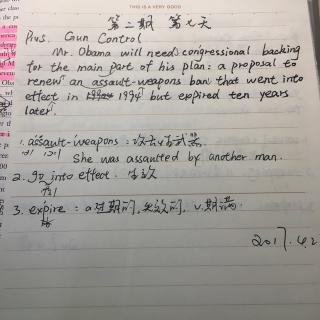 THIS IS A VERY GOOD
第二期 第七天
Gun Control
Mr. Obama will need congressional backing
for the main part of his plan: a proposal to
renew an assault-weapons ban that went into
effect in 1994 but expired ten years
later.
1. assault-weapons: 攻击性武器
She was assaulted by another man.
2. go into effect. 生效
3. expire: a 过期的, 失效的, v. 期满
2017.4.2